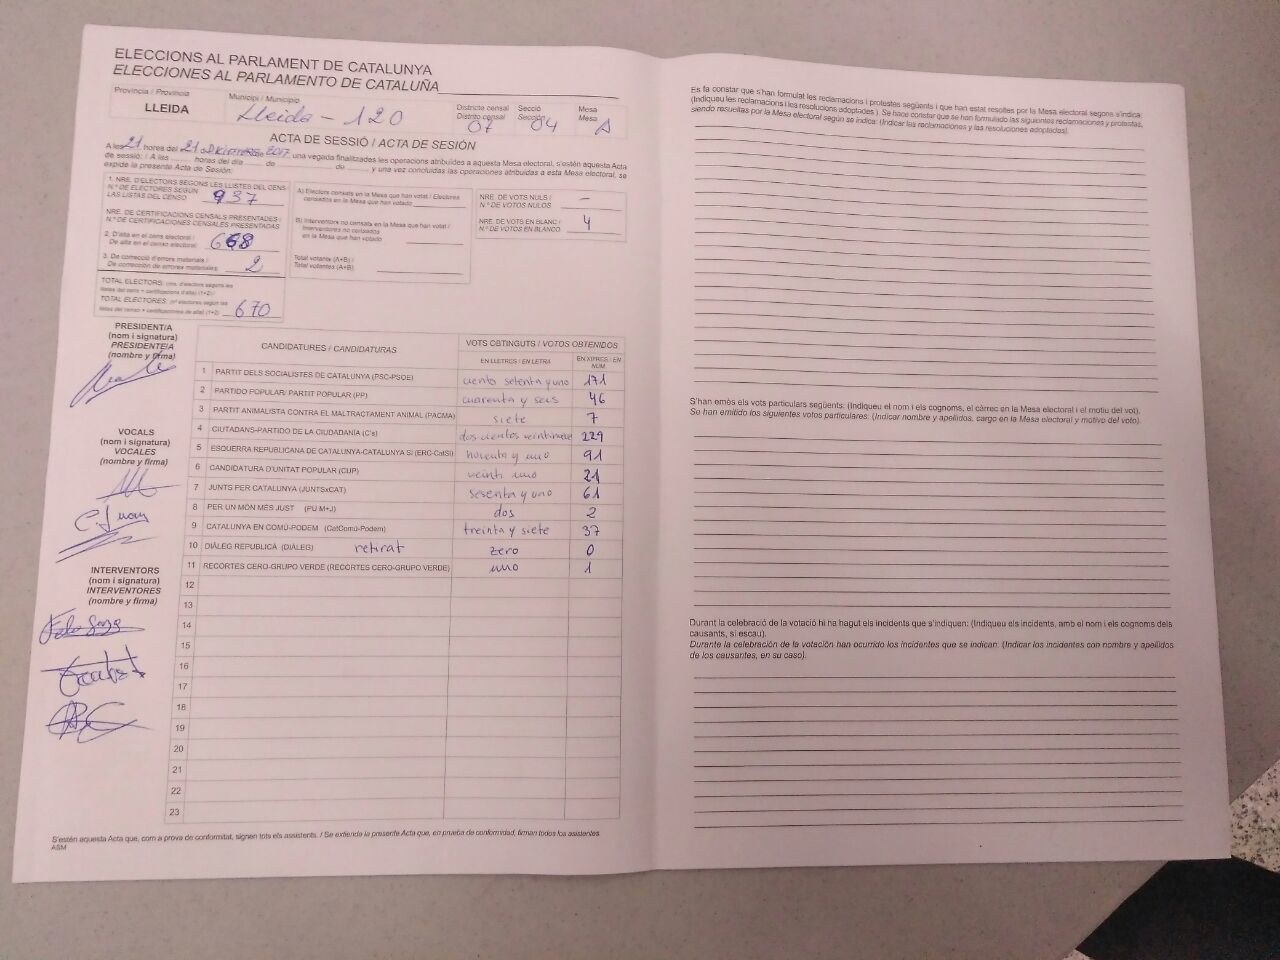 ELECCIONS AL PARLAMENT DE CATALUNYA
ELECCIONES AL PARLAMENTO DE CATALUÑA
Província / Provincia
LLEIDA
Municipi / Municipio
Lleida - 120
Districte censal
Distrito censal
07
Secció
Sección
04
Mesa
Mesa
A
ACTA DE SESSIÓ / ACTA DE SESIÓN
A les 21 hores del 21 de DICIEMBRE de 2017 una vegada finalitzades les operacions atribuïdes a aquesta Mesa electoral, s'estén aquesta Acta
de sessió: / A las ......... horas del día ..... de ............ de ....... y una vez concluidas las operaciones atribuidas a esta Mesa electoral, se
expide la presente Acta de Sesión:
1. NRE. D'ELECTORS SEGONS LES LLISTES DEL CENS
N.º DE ELECTORES SEGÚN
LAS LISTAS DEL CENSO
937
NRE. DE CERTIFICACIONS CENSALS PRESENTADES /
N.º DE CERTIFICACIONES CENSALES PRESENTADAS
2. D'alta en el cens electoral /
De alta en el censo electoral:
668
3. De correcció d'errors materials /
De corrección de errores materiales:
2
TOTAL ELECTORS: (nre. d'electors segons les
llistes del cens + certificacions d'alta) (1+2) /
TOTAL ELECTORES: (nº electores según las
listas del censo + certificaciones de alta) (1+2)
670
A) Electors censats en la Mesa que han votat / Electores
censados en la Mesa que han votado
B) Interventors no censats en la Mesa que han votat /
Interventores no censados
en la Mesa que han votado
Total votants (A+B) /
Total votantes (A+B)
NRE. DE VOTS NULS /
N.º DE VOTOS NULOS
-
NRE. DE VOTS EN BLANC /
N.º DE VOTOS EN BLANCO
4
PRESIDENT/A
(nom i signatura)
PRESIDENTE/A
(nombre y firma)
VOCALS
(nom i signatura)
VOCALES
(nombre y firma)
C. Juan
INTERVENTORS
(nom i signatura)
INTERVENTORES
(nombre y firma)
CANDIDATURES / CANDIDATURAS
VOTS OBTINGUTS / VOTOS OBTENIDOS
EN LLETRES / EN LETRA
EN XIFRES / EN NÚM.
1 PARTIT DELS SOCIALISTES DE CATALUNYA (PSC-PSOE) ciento setenta y uno 171
2 PARTIDO POPULAR/ PARTIT POPULAR (PP) cuarenta y seis 46
3 PARTIT ANIMALISTA CONTRA EL MALTRACTAMENT ANIMAL (PACMA) siete 7
4 CIUTADANS-PARTIDO DE LA CIUDADANÍA (C's) dos cientos veintinueve 229
5 ESQUERRA REPUBLICANA DE CATALUNYA-CATALUNYA SÍ (ERC-CatSí) noventa y uno 91
6 CANDIDATURA D'UNITAT POPULAR (CUP) veinti uno 21
7 JUNTS PER CATALUNYA (JUNTSxCAT) sesenta y uno 61
8 PER UN MÓN MÉS JUST (PU M+J) dos 2
9 CATALUNYA EN COMÚ-PODEM (CatComú-Podem) treinta y siete 37
10 DIÀLEG REPUBLICÀ (DIÀLEG) retirat zero 0
11 RECORTES CERO-GRUPO VERDE (RECORTES CERO-GRUPO VERDE) uno 1
12
13
14
15
16
17
18
19
20
21
22
23
S'estén aquesta Acta que, com a prova de conformitat, signen tots els assistents. / Se extiende la presente Acta que, en prueba de conformidad, firman todos los asistentes.
ASM
Es fa constar que s'han formulat les reclamacions i protestes següents i que han estat resoltes per la Mesa electoral segons s'indica:
(Indiqueu les reclamacions i les resolucions adoptades ). Se hace constar que se han formulado las siguientes reclamaciones y protestas,
siendo resueltas por la Mesa electoral según se indica: (Indicar las reclamaciones y las resoluciones adoptadas).
S'han emès els vots particulars següents: (Indiqueu el nom i els cognoms, el càrrec en la Mesa electoral i el motiu del vot).
Se han emitido los siguientes votos particulares: (Indicar nombre y apellidos, cargo en la Mesa electoral y motivo del voto).
Durant la celebració de la votació hi ha hagut els incidents que s'indiquen: (Indiqueu els incidents, amb el nom i els cognoms dels
causants, si escau).
Durante la celebración de la votación han ocurrido los incidentes que se indican: (Indicar los incidentes con nombre y apellidos
de los causantes, en su caso).